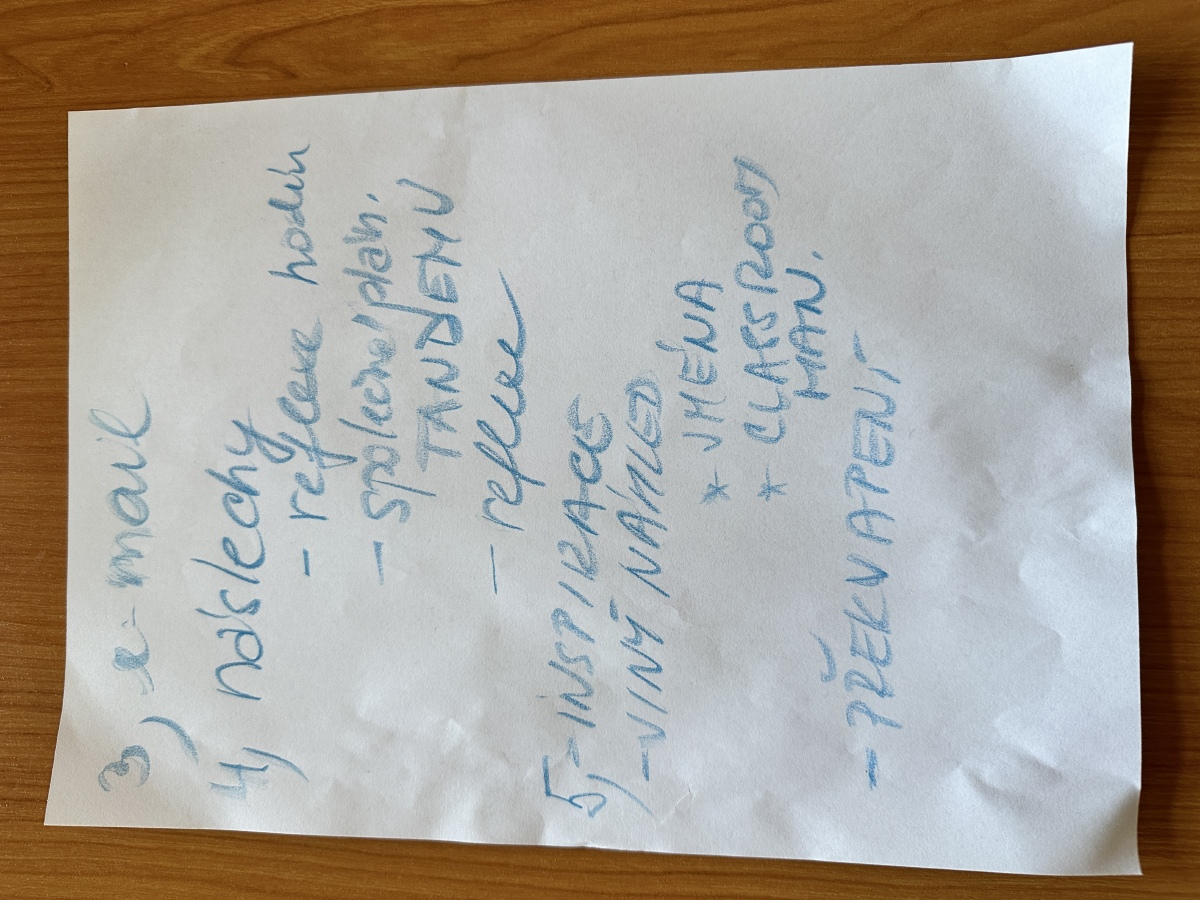 3) e-mail
4) náslechy
- reflexe hodin
- společné plán.
TANDEMU
- reflexe
5) - INSPIRACE
- JINÝ NÁHLED
* JMÉNA
* CLASSROOM
MAN.
- PŘEKVAPENÍ